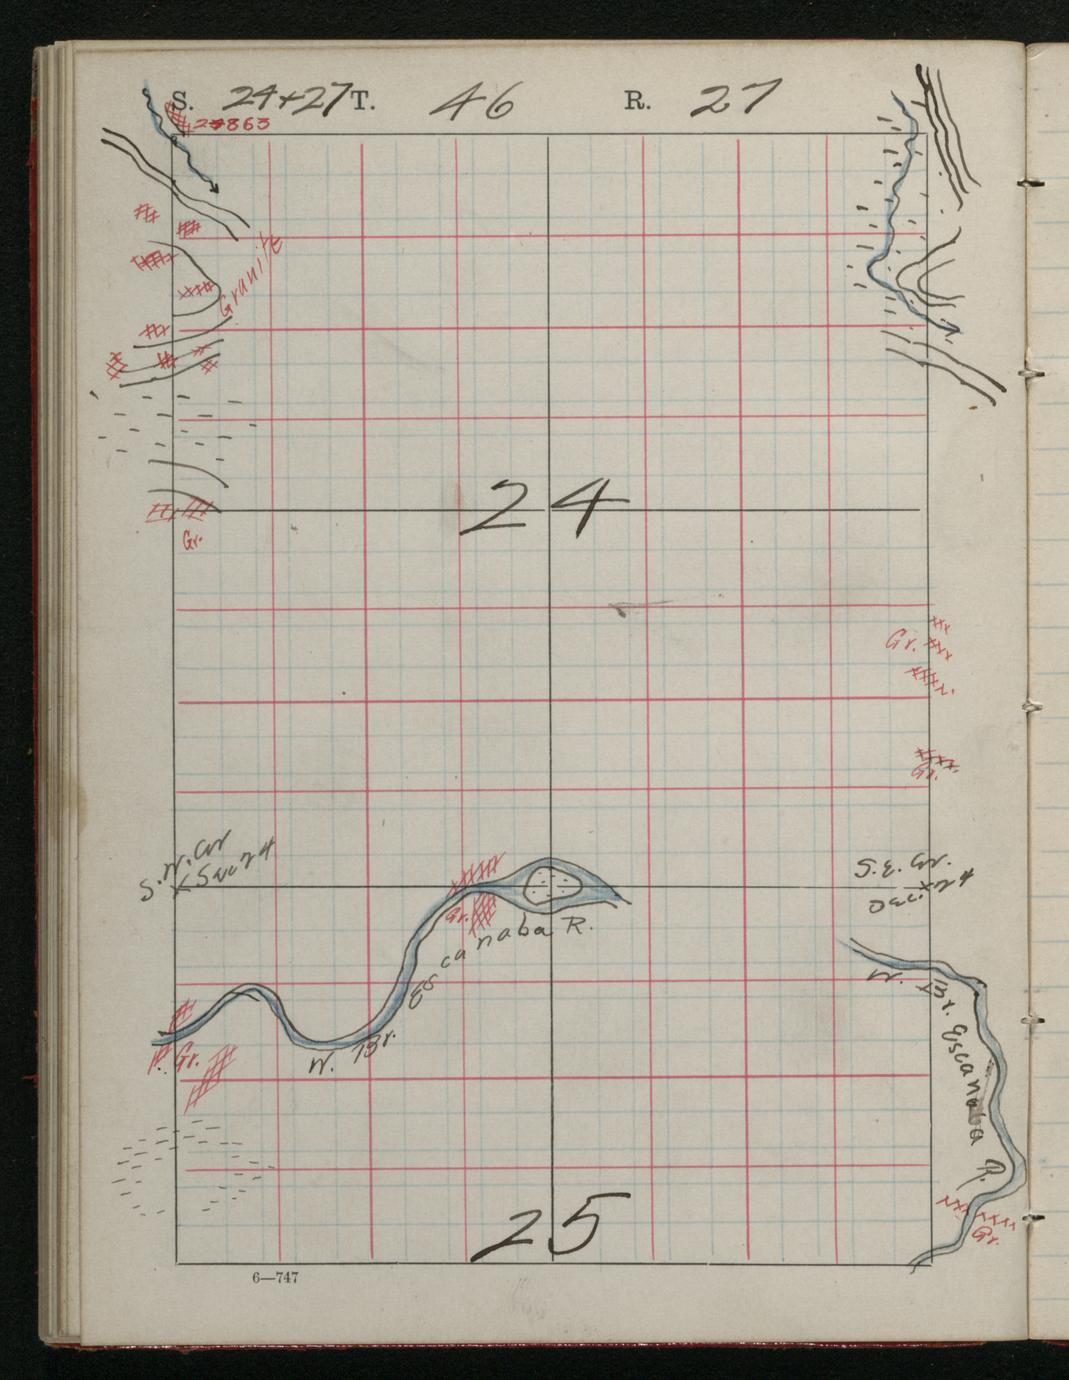 S. 24+27 T. 46 R. 27
863
Granite
24
Gr.
Gr.
Gr.
S.W. Cor
Sec 24
S.E. Cor.
Sec. 24
Gr.
W. Br. Escanaba R.
W. Br. Escanaba R.
Gr.
Gr.
25
6—747